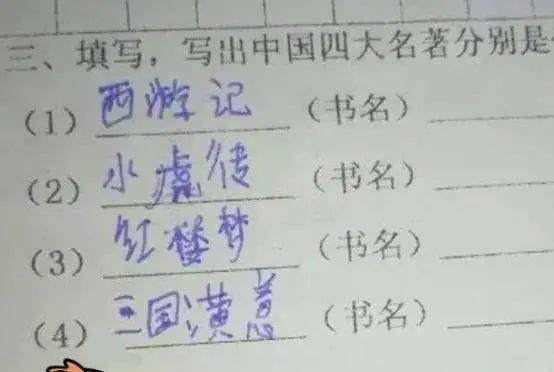 三、填写，写出中国四大名著分别是
(1) 西游记 （书名）
(2) 水虎传 （书名）
(3) 红楼梦 （书名）
(4) 三国潢意 （书名）